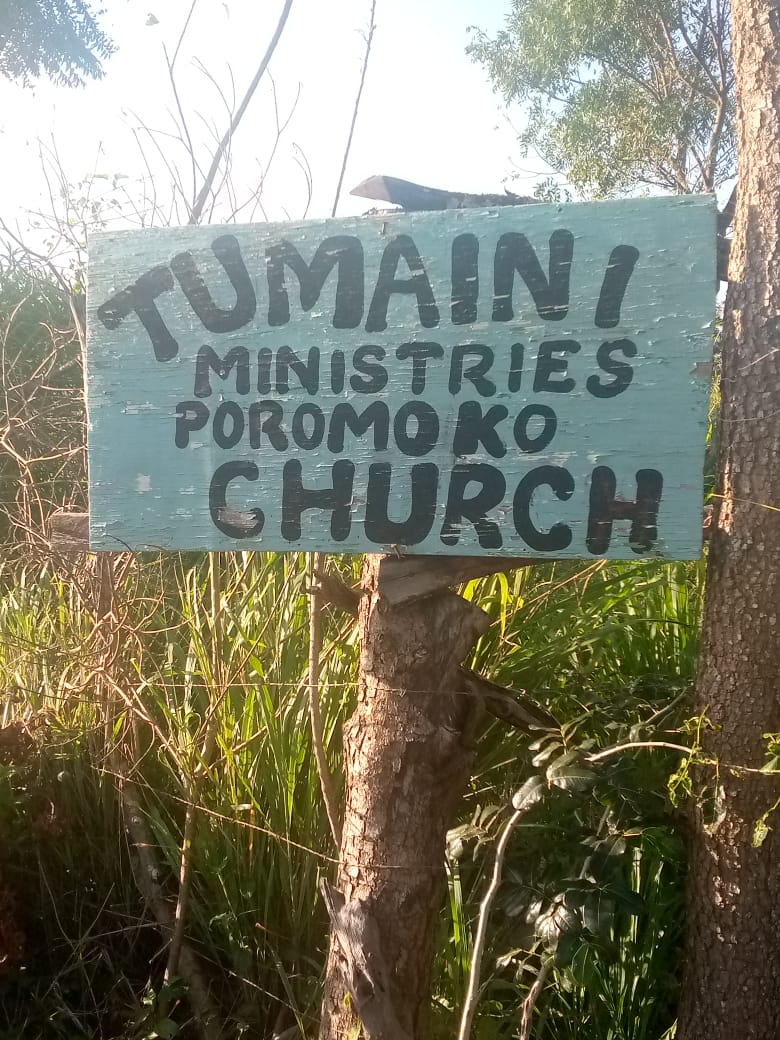 TUMAINI
MINISTRIES
POROMOKO
CHURCH